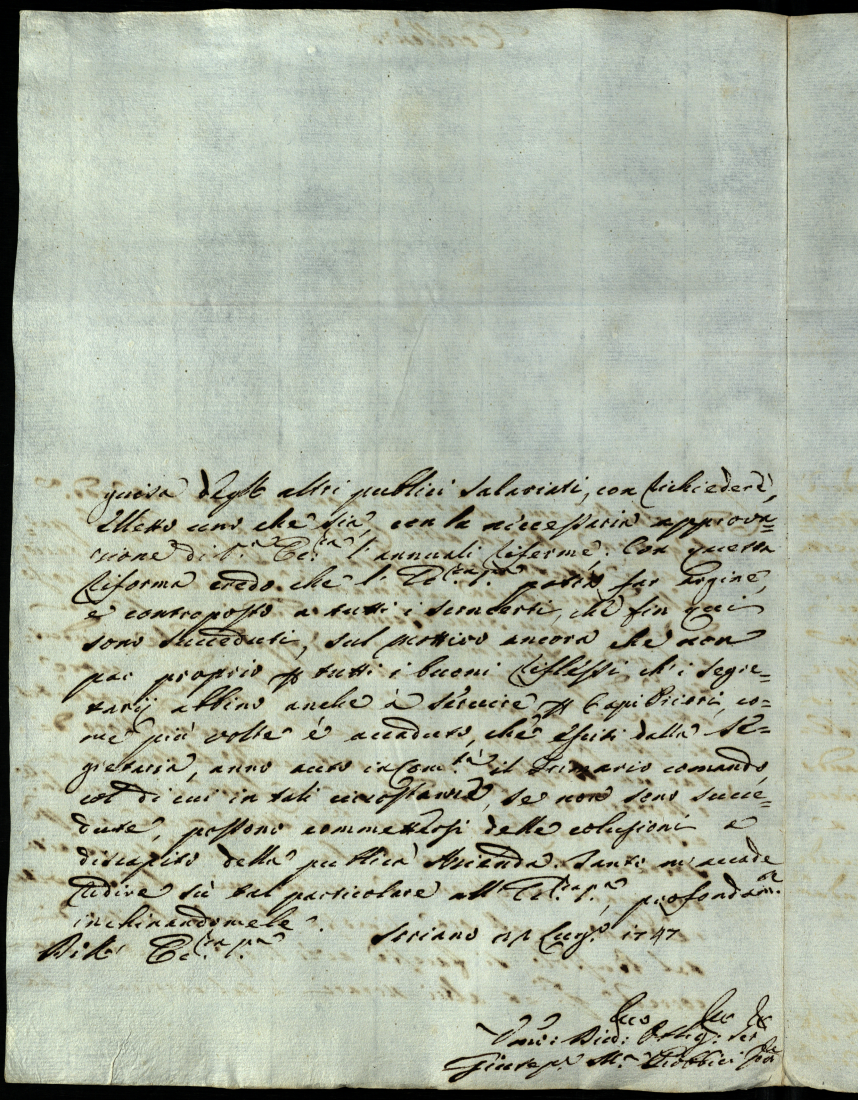 guisa degl' altri publici salariati, con richiedere,
Eletto uno che sia con la necessaria approva-
zione di V.ra Ecc.za l' annuali riferme. Con questa
riforma credo che l' Ecc.za V.ra potrà far argine,
e contraposto a tutti i sconcerti, che fin qui
sono succeduti, sul mottivo ancora che non
par proprio p tutti i buoni riflessi, ch' i segre-
tarij abbino anche à servire p Capi Priori, co-
me più volte è accaduto, che esciti dalla Se-
gretaria, anno auto in Com.tà il Primario comando
col di cui in tali circostanze, se non sono succe-
dute, possono commettersi delle colusioni a
discapito della publica Azienda. Tanto m' accade
ridire sù tal particolare all' Ecc.za V.ra, profondam.te
inchinandomele.
Di V. Ecc.za V.ra Soriano Lug.o 1747
Umo: Divo: Oblig: Ser
Giusep.e M.a